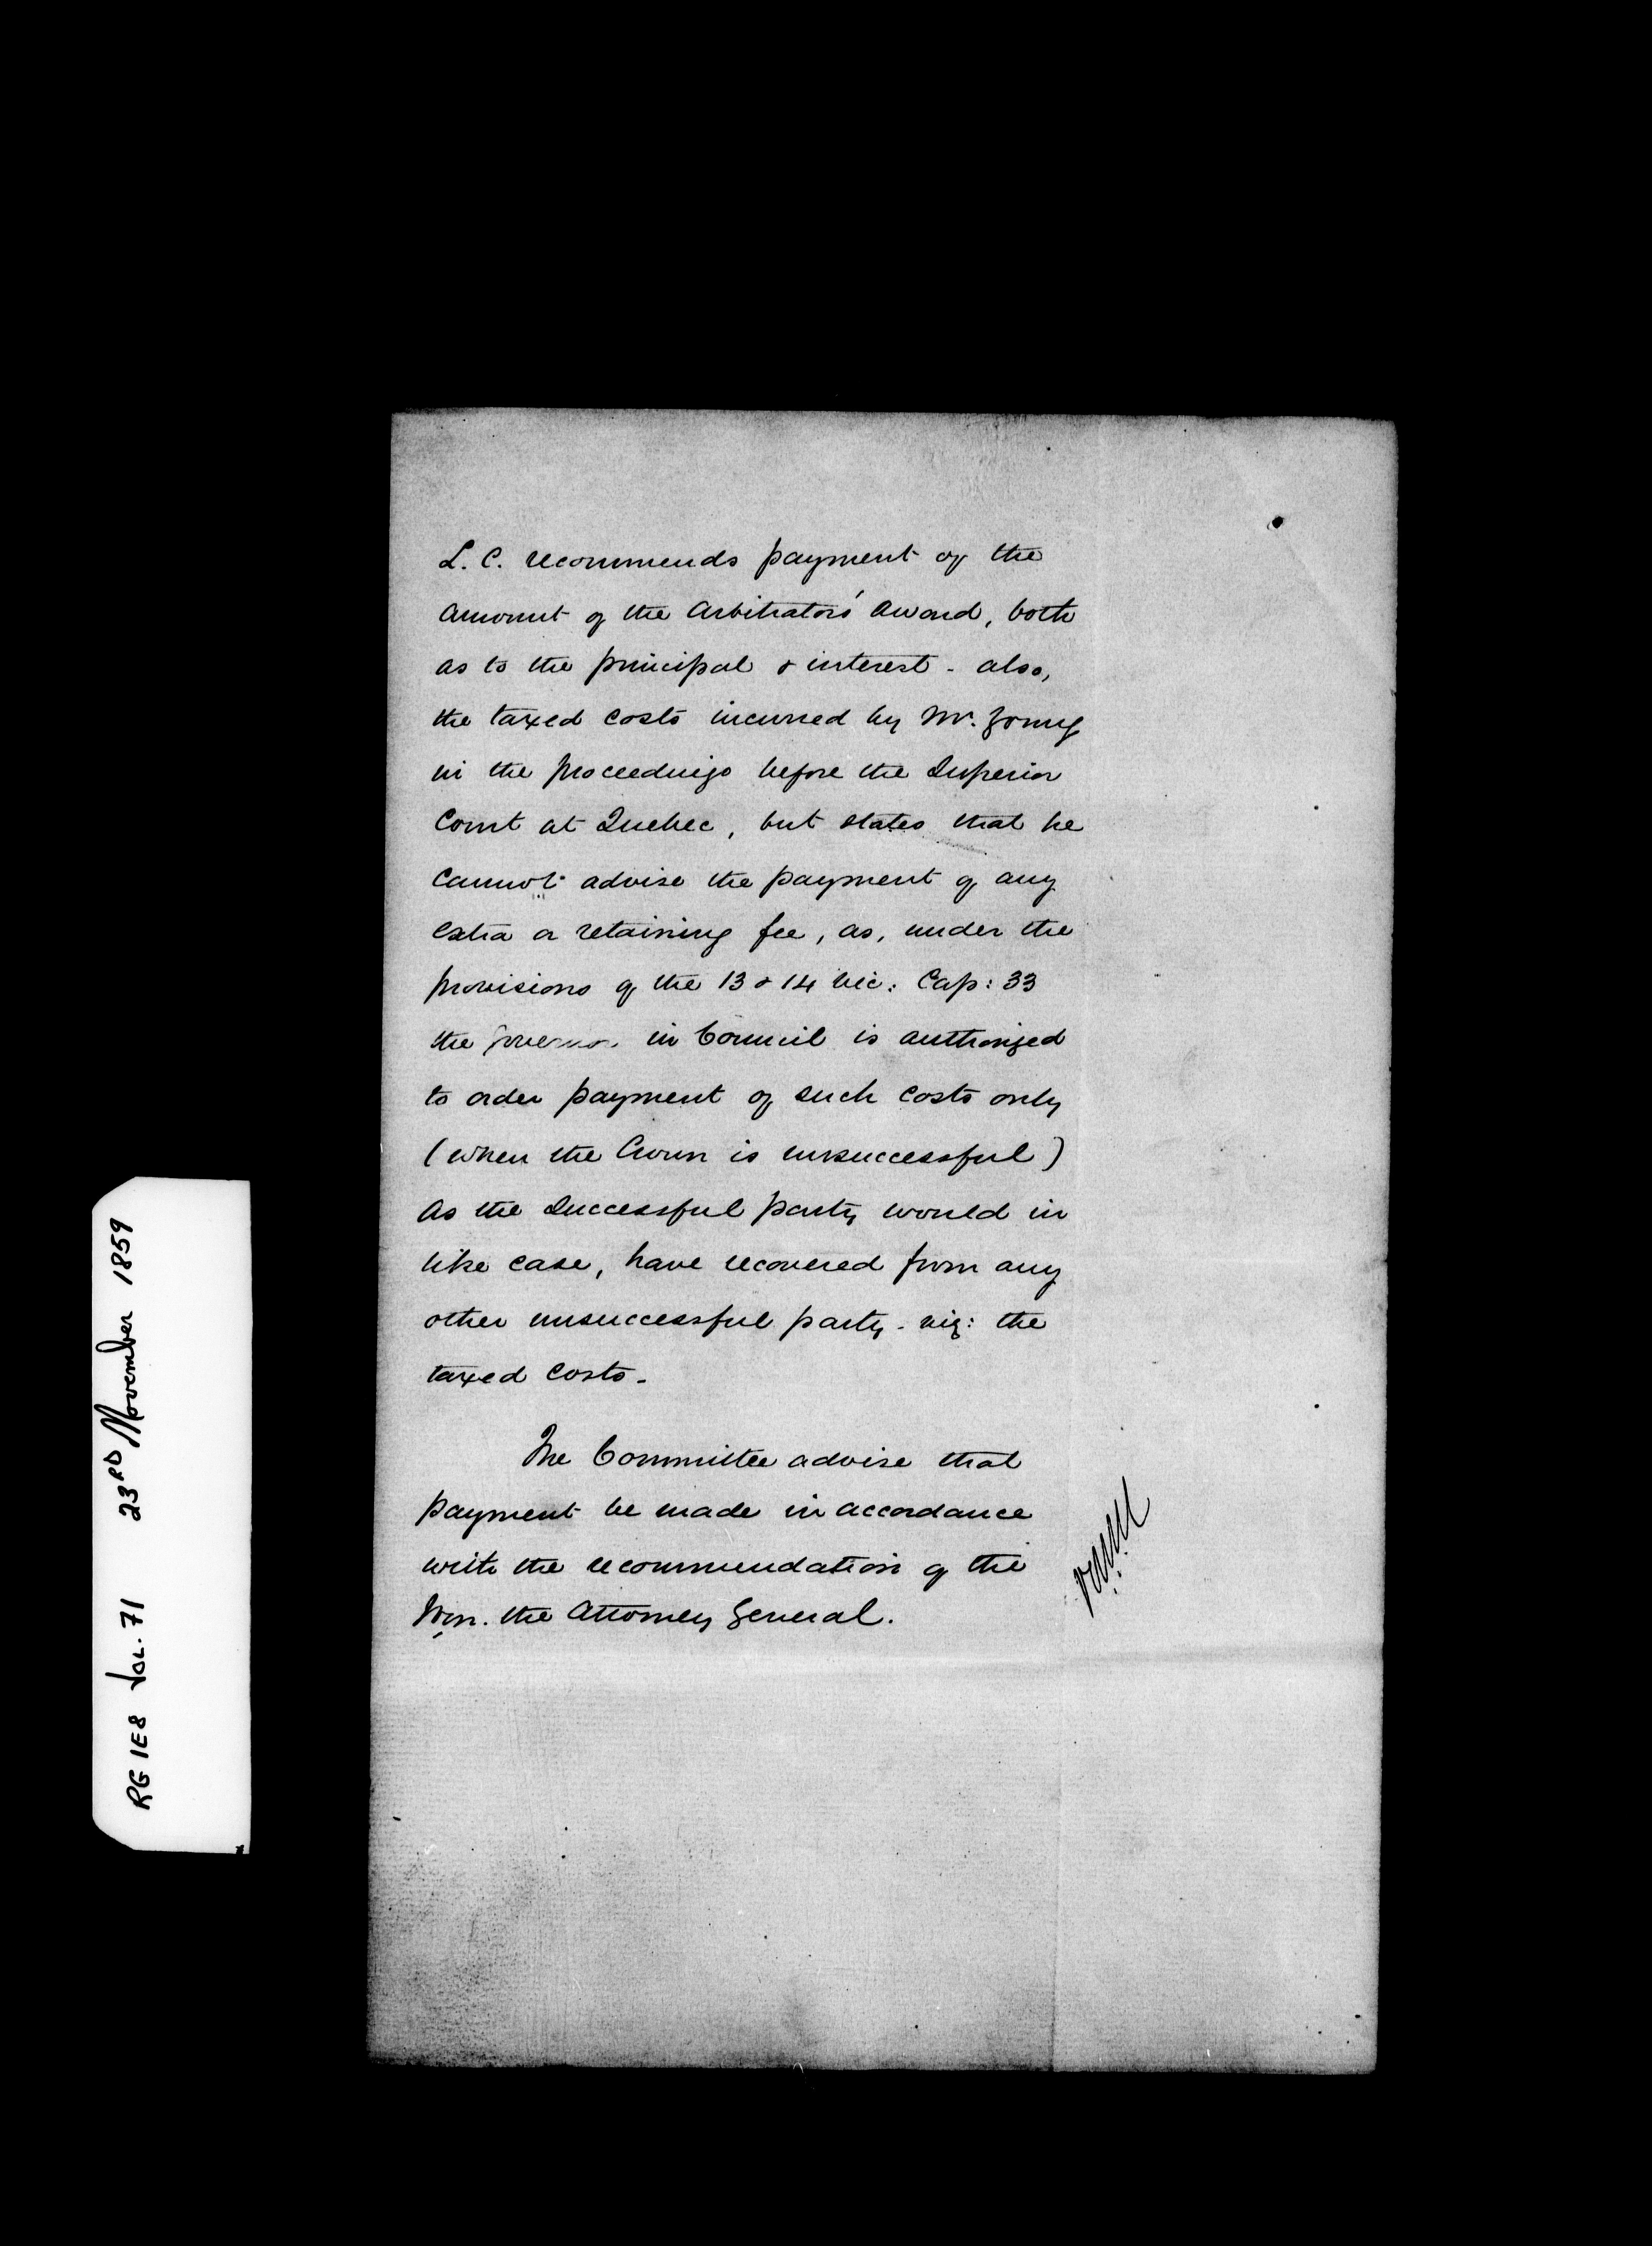 L. C. recommends payment of the
amount of the Arbitrators' Award, both
as to the principal & interest - also,
the taxed costs incurred by Mr. Young
in the proceedings before the Superior
Court at Quebec, but states that he
cannot advise the payment of any
extra or retaining fee, as, under the
provisions of the 13 & 14 Vic: Cap: 33
the Governor in Council is authorized
to order payment of such costs only
(when the Crown is unsuccessful)
as the successful party would in
like case, have recovered from any
other unsuccessful party - viz: the
taxed costs.
The Committee advise that
payment be made in accordance
with the recommendation of the
Hon. the Attorney General.
RG 1E8 Vol. 71 23RD November 1859